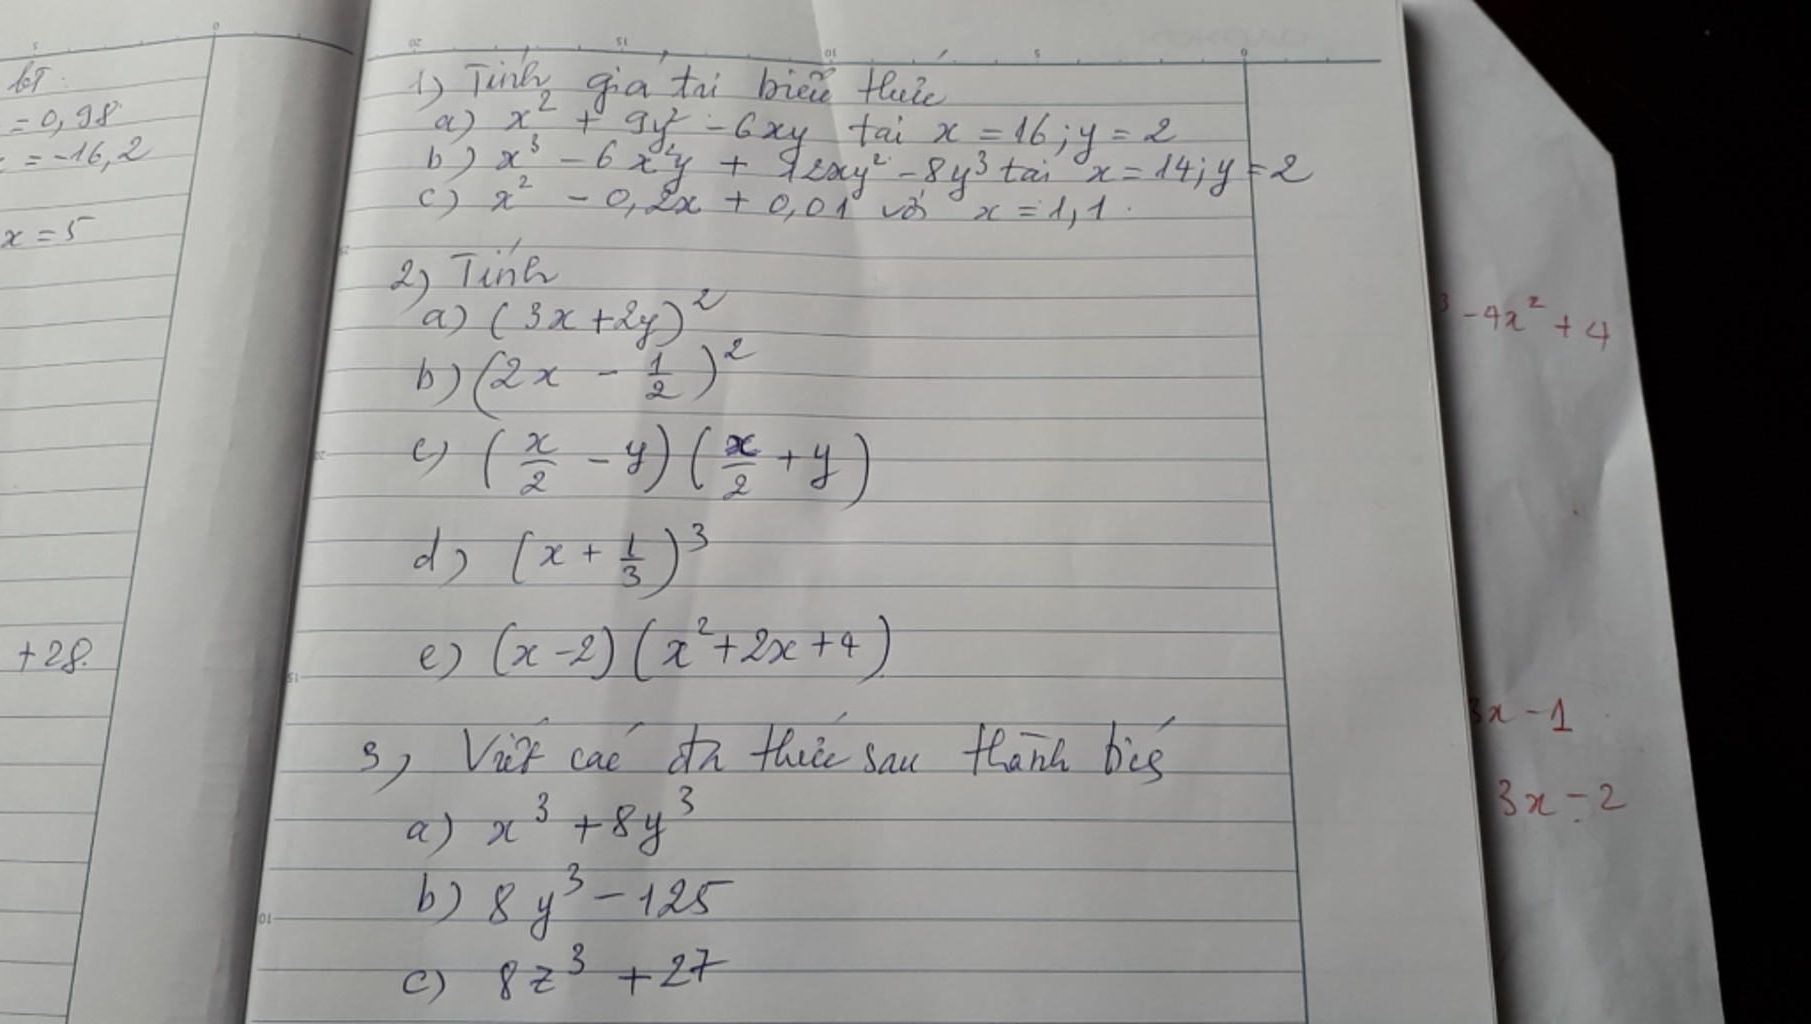 bT:
= 0,98
= -16,2
x = 5
+28.
1) Tính giá trị biểu thức
a) x² + 9y² - 6xy tại x = 16 ; y = 2
b) x³ - 6x²y + 12xy² - 8y³ tại x = 14; y = 2
c) x² - 0,2x + 0,01 với x = 1,1.
2) Tính
a) (3x + 2y)²
b) (2x - 1/2)²
c) (x/2 - y)(x/2 + y)
d) (x + 1/3)³
e) (x - 2)(x² + 2x + 4)
3) Viết các đa thức sau thành tích
a) x³ + 8y³
b) 8y³ - 125
c) 8z³ + 27
³ - 4x² + 4
3x - 1
3x - 2